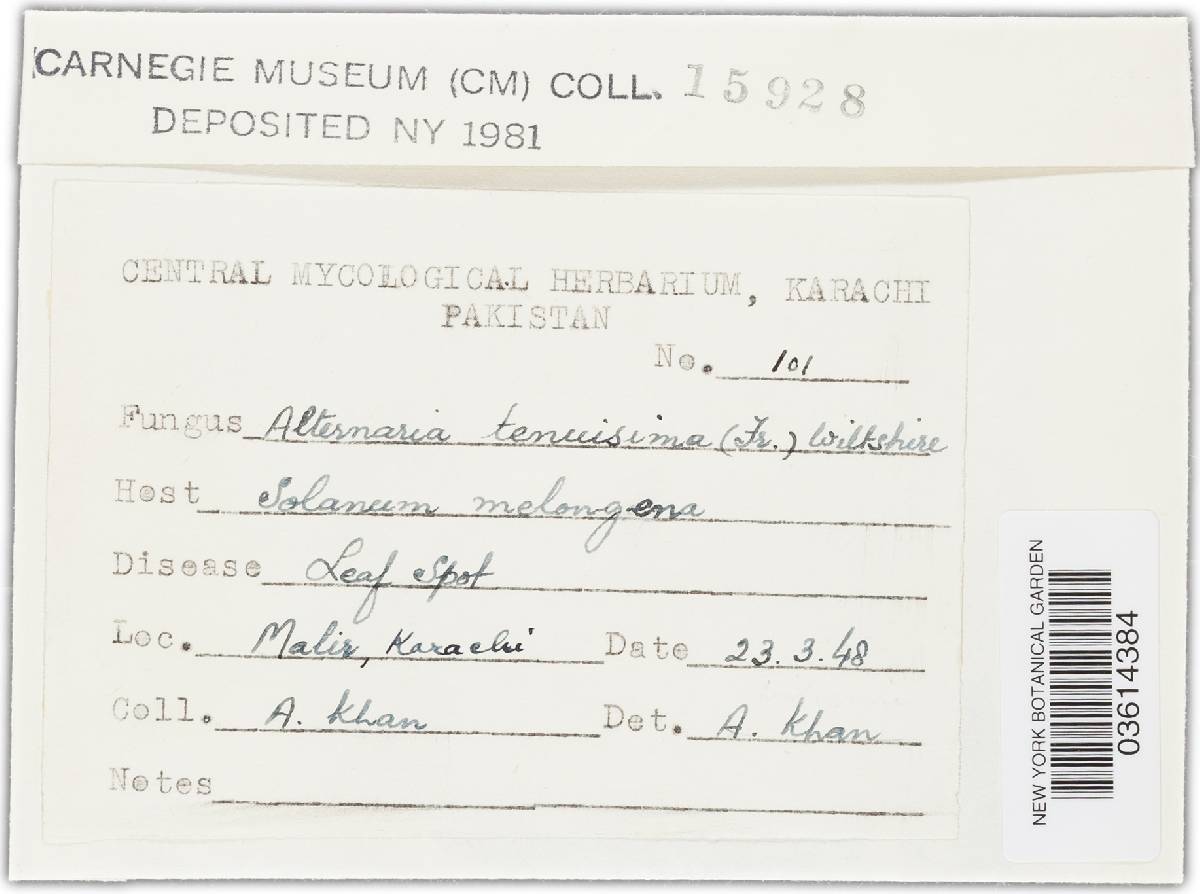 CARNEGIE MUSEUM (CM) COLL. 15928
DEPOSITED NY 1981
CENTRAL MYCOLOGICAL HERBARIUM, KARACHI
PAKISTAN
No. 101
Fungus Alternaria tenuisima (Fr.) Wiltshire
Host Solanum melongena
Disease Leaf Spot
Loc. Malir, Karachi Date 23.3.48
Coll. A. Khan Det. A. Khan
Notes
NEW YORK BOTANICAL GARDEN
03614384